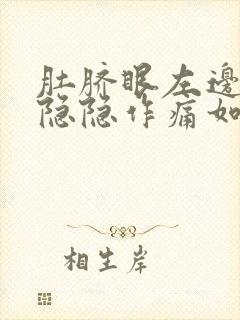 肚脐眼左邊
隐隐作痛如
相生岸